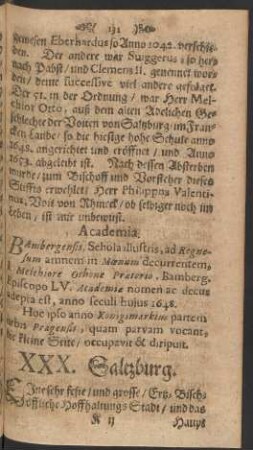 131
gewesen Eberhardus so Anno 1042. verschie-
den. Der andere war Suiggerus / so her-
nach Pabst / und Clemens II. genennet wor-
den / deme successive viel andere gefolget.
Der 51. in der Ordnung / war Herr Mel-
chior Otto, auß dem alten Adelichen Ge-
schlechte der Voiten von Saltzburg / im Fran-
cken Lande / so die hiesige hohe Schule anno
1648. angerichtet und eröffnet / und Anno
1653. abgeleibt ist. Nach dessen Absterben
wurde / zum Bischoff und Vorsteher dieses
Stiffts erwehlet / Herr Philippus Valenti-
nus, Voit von Rhineck / ob selbiger noch im
Leben / ist mir unbewust.
Academia.
Bambergensis, Schola illustris, ad Regne-
sum amnem in Mœnum decurrentem,
à Melchiore Othone Præterio, Bamberg.
Episcopo LV. Academiæ nomen ac decus
adepta est, anno seculi hujus 1648.
Hoc ipso anno Königsmarkius partem
urbis Pragensis, quam parvam vocant,
die kleine Seite / occupavit & diripuit.
XXX. Saltzburg.
Eine sehr feste / und grosse / Ertz-Bisch-
öffliche Hoffhaltungs Stadt / und das
K ij Haupt